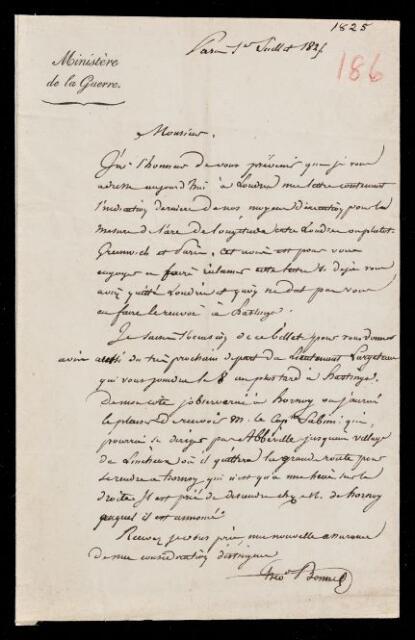 1825
Ministère
de la Guerre.
Paris 1er Juillet 1825
186
Monsieur,
J'ai l'honneur de vous prévenir que je vous
adresse aujourd'hui à Londres une lettre contenant
l'indication dernière de nos moyens d'exécution pour la
mesure de l'arc de longitude entre Londres ou plutot
Greenwich et Paris, cet avis est pour vous
engager à faire réclamer cette lettre si déjà vous
aviez quitté Londres et qu'on ne dut pas vous
en faire le renvoi à Hastings.
Je saisis l'occasion de ce billet pour vous donner
avis du très prochain départ du Lieutenant Largeteau
qui vous joindra le 8 au plus tard à Hastings.
De mon coté j'observerai à hornoy ou j'aurai
le plaisir de recevoir M. le Capne Sabine qui
pourra se diriger par Abbéville jusqu'au village
de Lincheux où il quittera la grande route pour
se rendre à hornoy, qui n'est qu'à une heure sur la
droite. Il est prié de descendre chez M. de hornoy
auquel il est annoncé.
Recevez je vous prie, une nouvelle assurance
de ma considération distinguée
Bonne